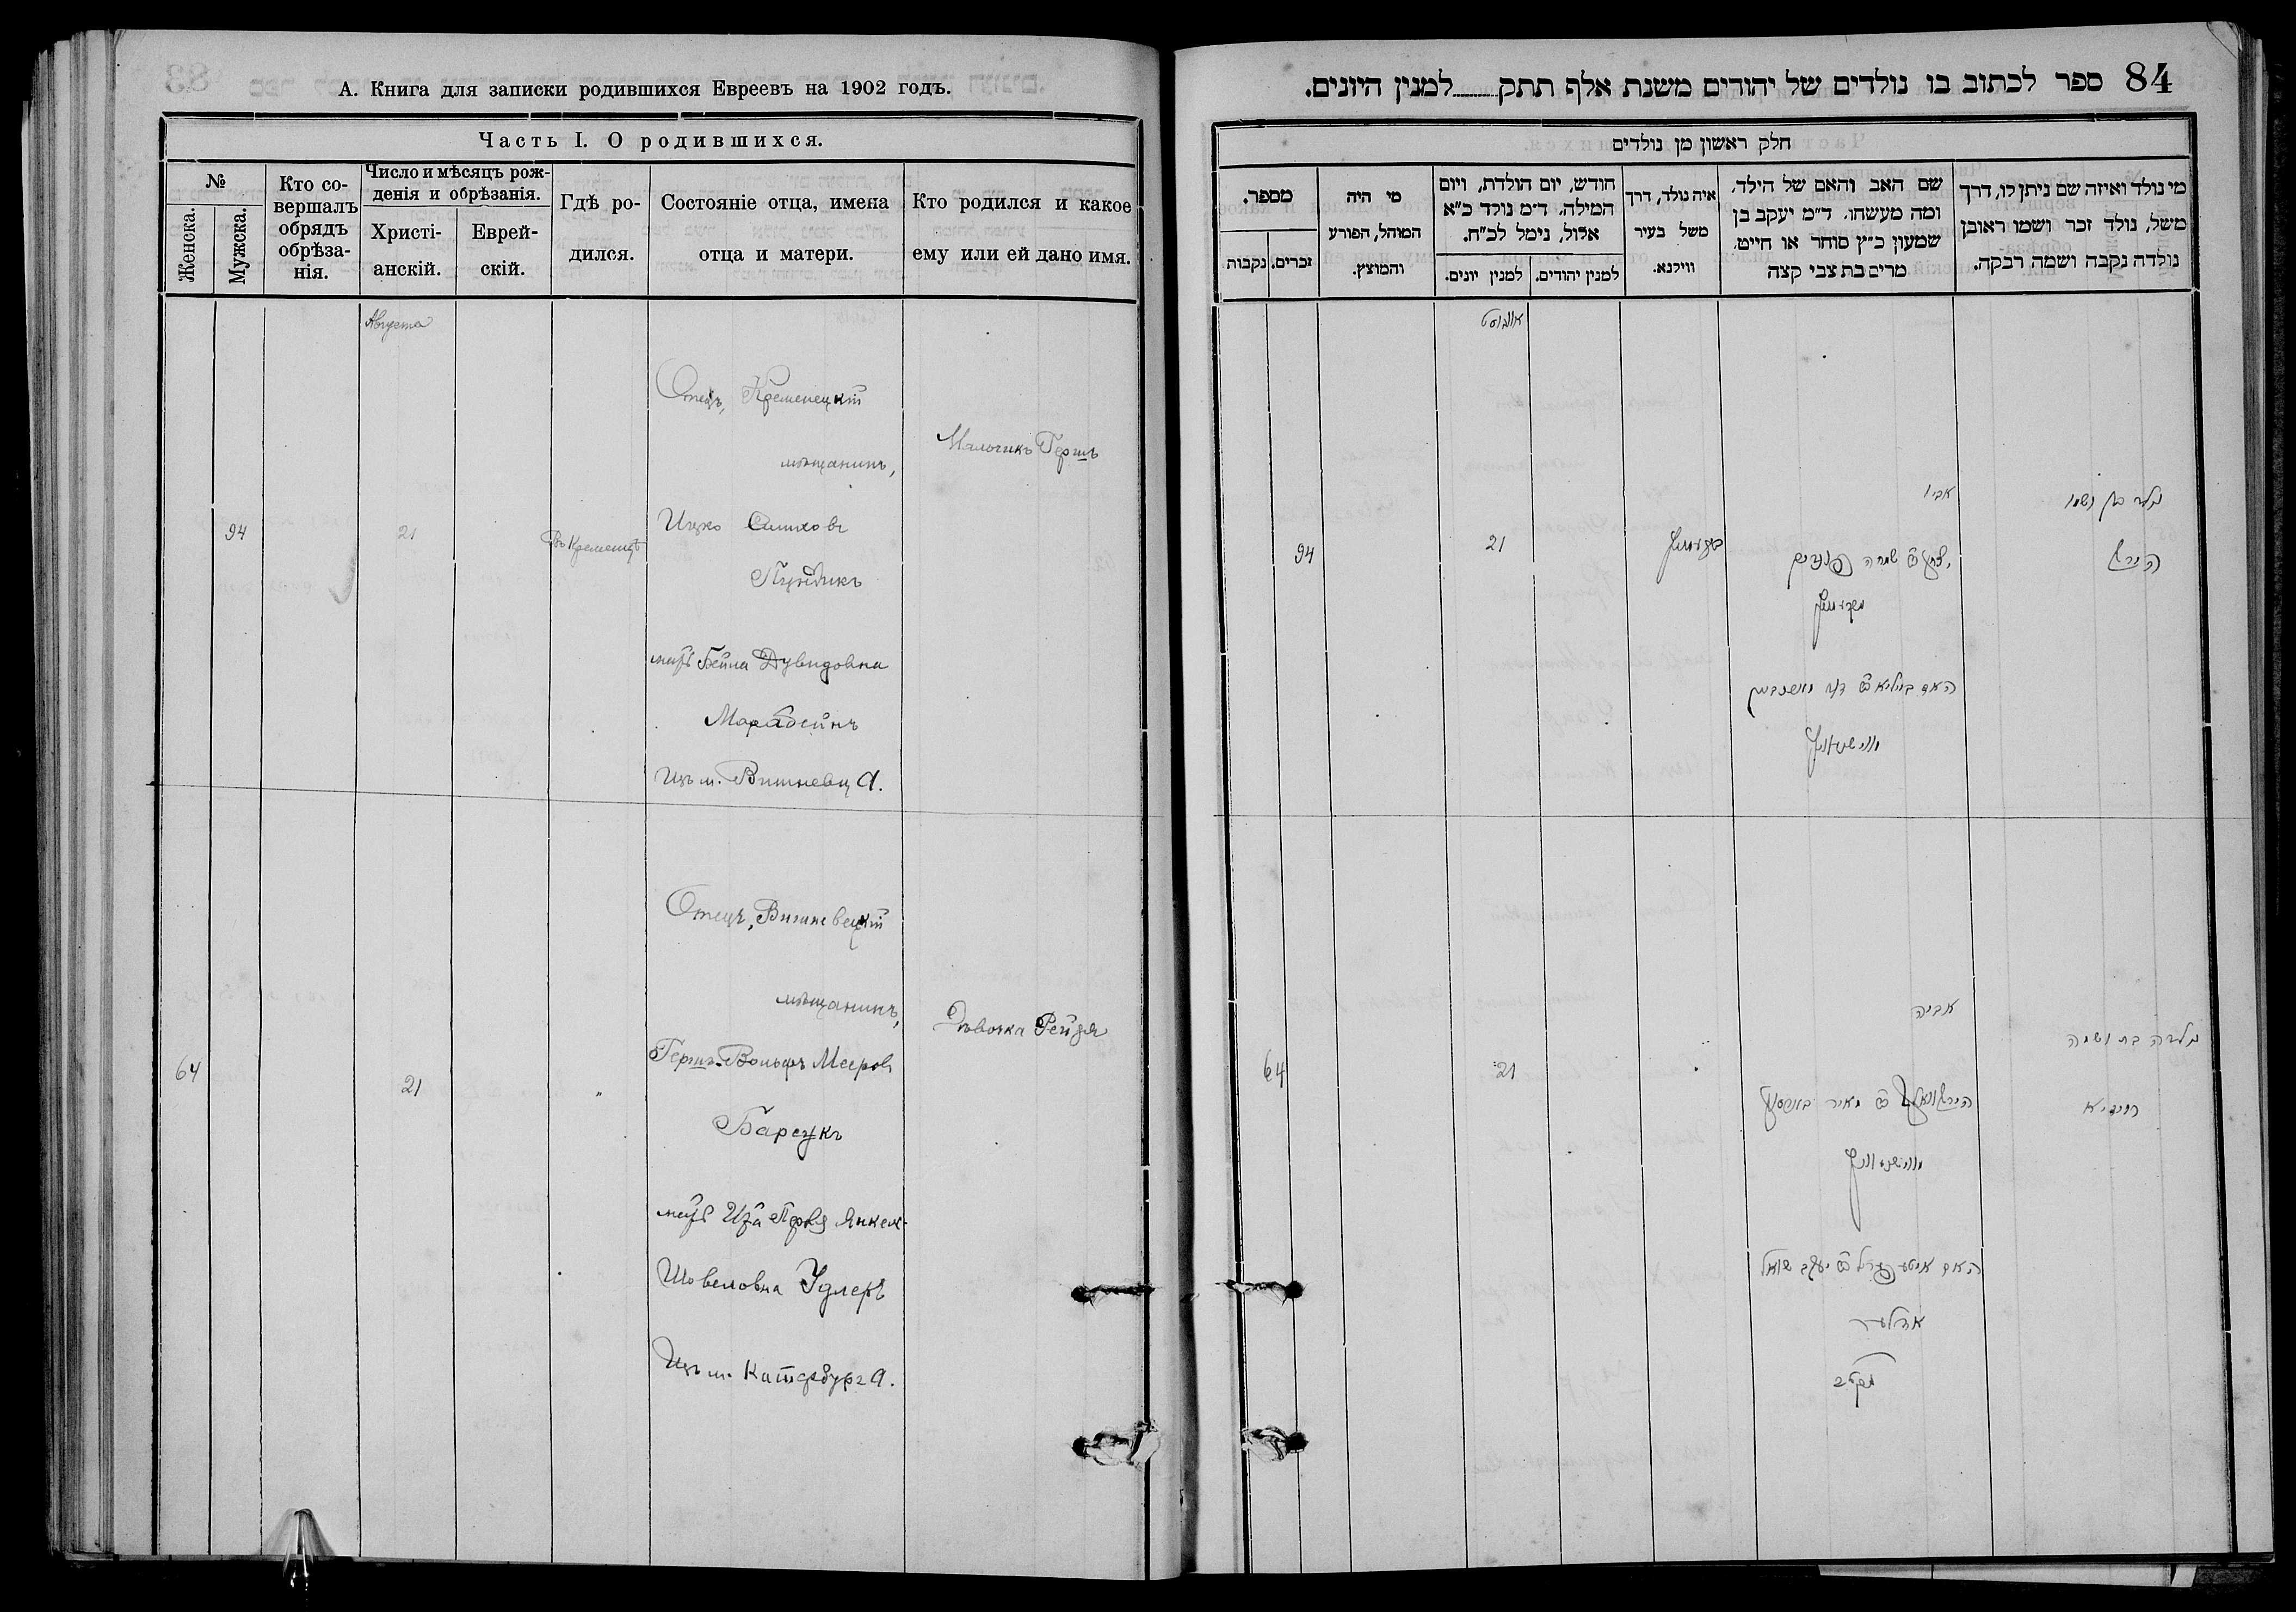 А. Книга для записки родившихся Евреевъ на 1902 годъ.
Часть I. О родившихся.
№
Женска.
Мужска.
Кто со-
вершалъ
обрядъ
обрѣза-
нія.
Число и мѣсяцъ рож-
денія и обрѣзанія.
Христі-
анскій.
Еврей-
скій.
Гдѣ ро-
дился.
Состояніе отца, имена
отца и матери.
Кто родился и какое
ему или ей дано имя.
Августа
94
21
Въ Кременцѣ
Отецъ, Кременецкій
мѣщанинъ,
Ицко Симхов
Пундикъ
мать Бейла Дувидовна
Изъ м. Вишневца.
Мальчикъ Гершъ
64
21
"
Отецъ, Вишневецкій
мѣщанинъ,
Гершъ-Вольфъ Мееров
Барсукъ
мать Ита Перля Янкель-
Шовеловна Удлеръ
Изъ м. Катербурга.
Дѣвочка Рейзя
84 ספר לכתוב בו נולדים של יהודים משנת אלף תתק למנין היונים.
חלק ראשון מן נולדים
מי נולד ואיזה שם ניתן לו, דרך
משל, נולד זכר ושמו ראובן
נולדה נקבה ושמה רבקה.
שם האב והאם של הילד,
ומה מעשהו, ד״מ יעקב בן
שמעון כ״ץ סוחר או חייט,
מרים בת צבי קצה
איה נולד, דרך
משל בעיר
ווילנא.
חודש, יום הולדת, ויום
המילה, ד״מ נולד כ״א
אלול, נימל לכ״ח.
למנין יהודים.
למנין יונים.
מי היה
המוהל, הפורע
והמוצץ.
מספר.
זכרים.
נקבות
אווגוסט
נולד בן ושמו
הירש
אביו
שמחה
21
94
נולדה בת ושמה
רייזיא
אביה
מאיר
יעקב שואל
אדלער
21
64